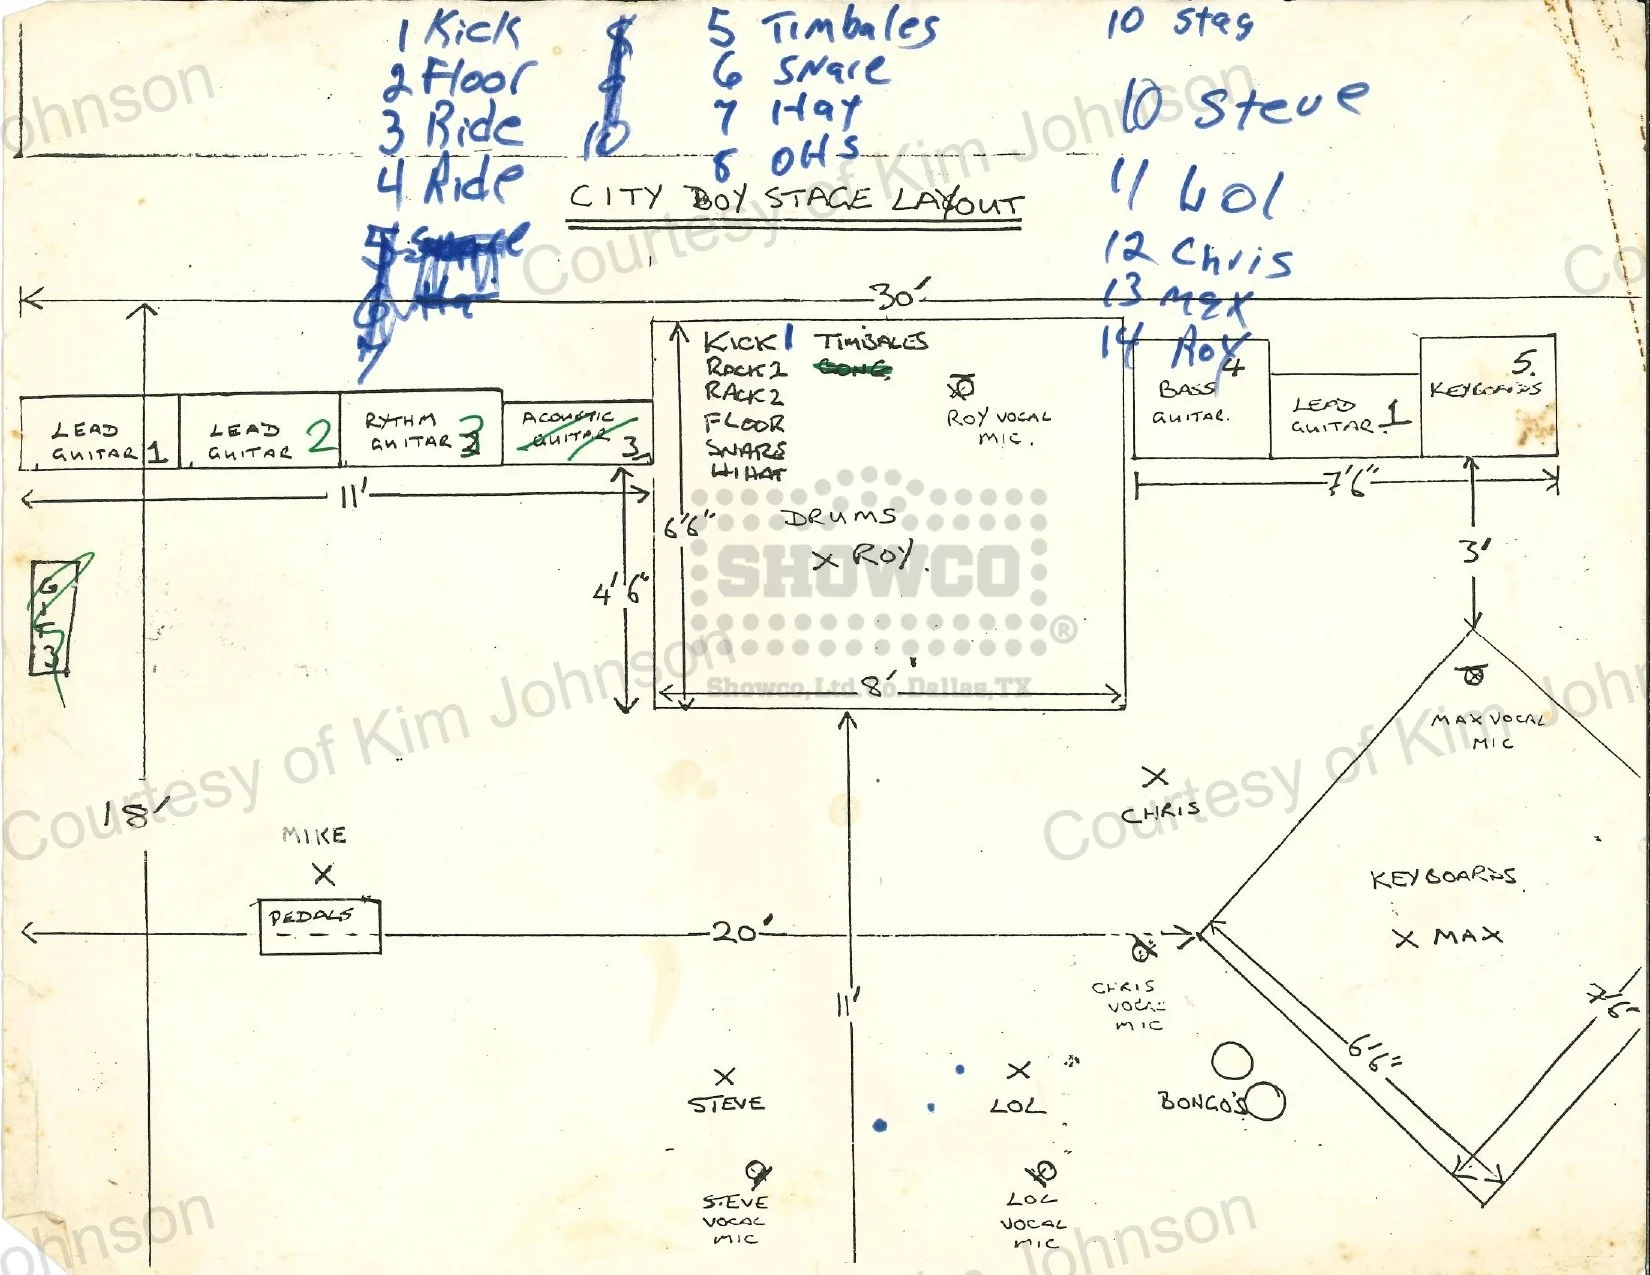 1 Kick
2 Floor
3 Ride
4 Ride
5 Snare
6 Ha
7
8
9
10
5 Timbales
6 Snare
7 Hat
8 OHS
10 Stag
10 Steve
11 Lol
12 Chris
13 Max
14 Roy
CITY BOY STAGE LAYOUT
30'
LEAD
GUITAR 1
LEAD
GUITAR 2
RYTHM
GUITAR 3
ACOUSTIC
GUITAR 3
11'
KICK 1 TIMBALES
RACK 1 GONG
RACK 2
FLOOR
SNARE
HIHAT
ROY VOCAL
MIC.
6'6"
DRUMS
X ROY.
8'
4'6"
BASS 4
GUITAR.
LEAD
GUITAR. 1
5.
KEYBOARDS
7'6"
3'
G
T
3
18'
MIKE
X
PEDALS
20'
11'
X
CHRIS
CHRIS
VOCAL
MIC
MAX VOCAL
MIC
KEYBOARDS
X MAX
7'6"
6'6"
BONGO'S
X
STEVE
STEVE
VOCAL
MIC
X
LOL
LOL
VOCAL
MIC
SHOWCO
®
Showco, Ltd. Co. Dallas, TX
Courtesy of Kim Johnson
Courtesy of Kim Johnson
Courtesy of Kim Johnson
Johnson
Johnson
Johnson
Co